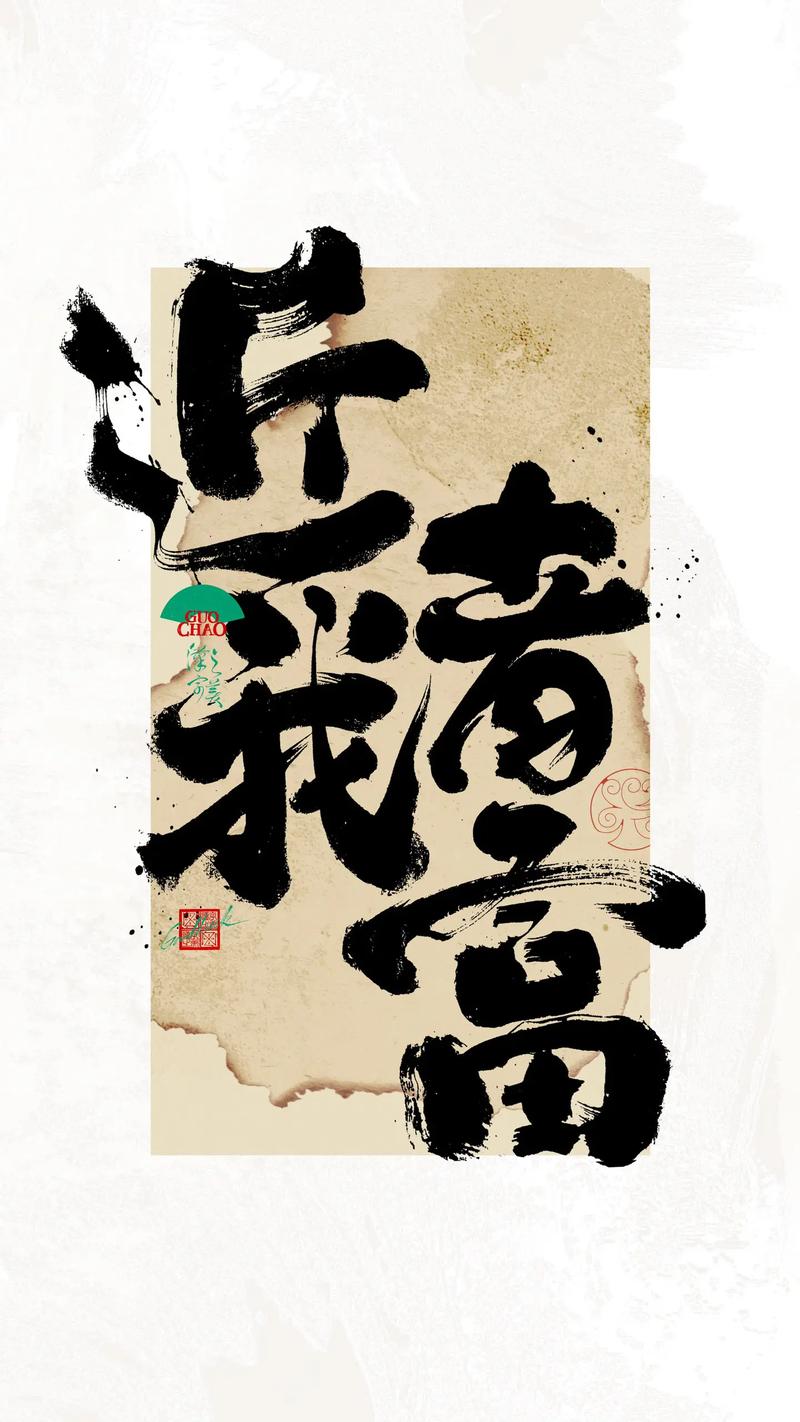 近我
者富
GUO
CHAO